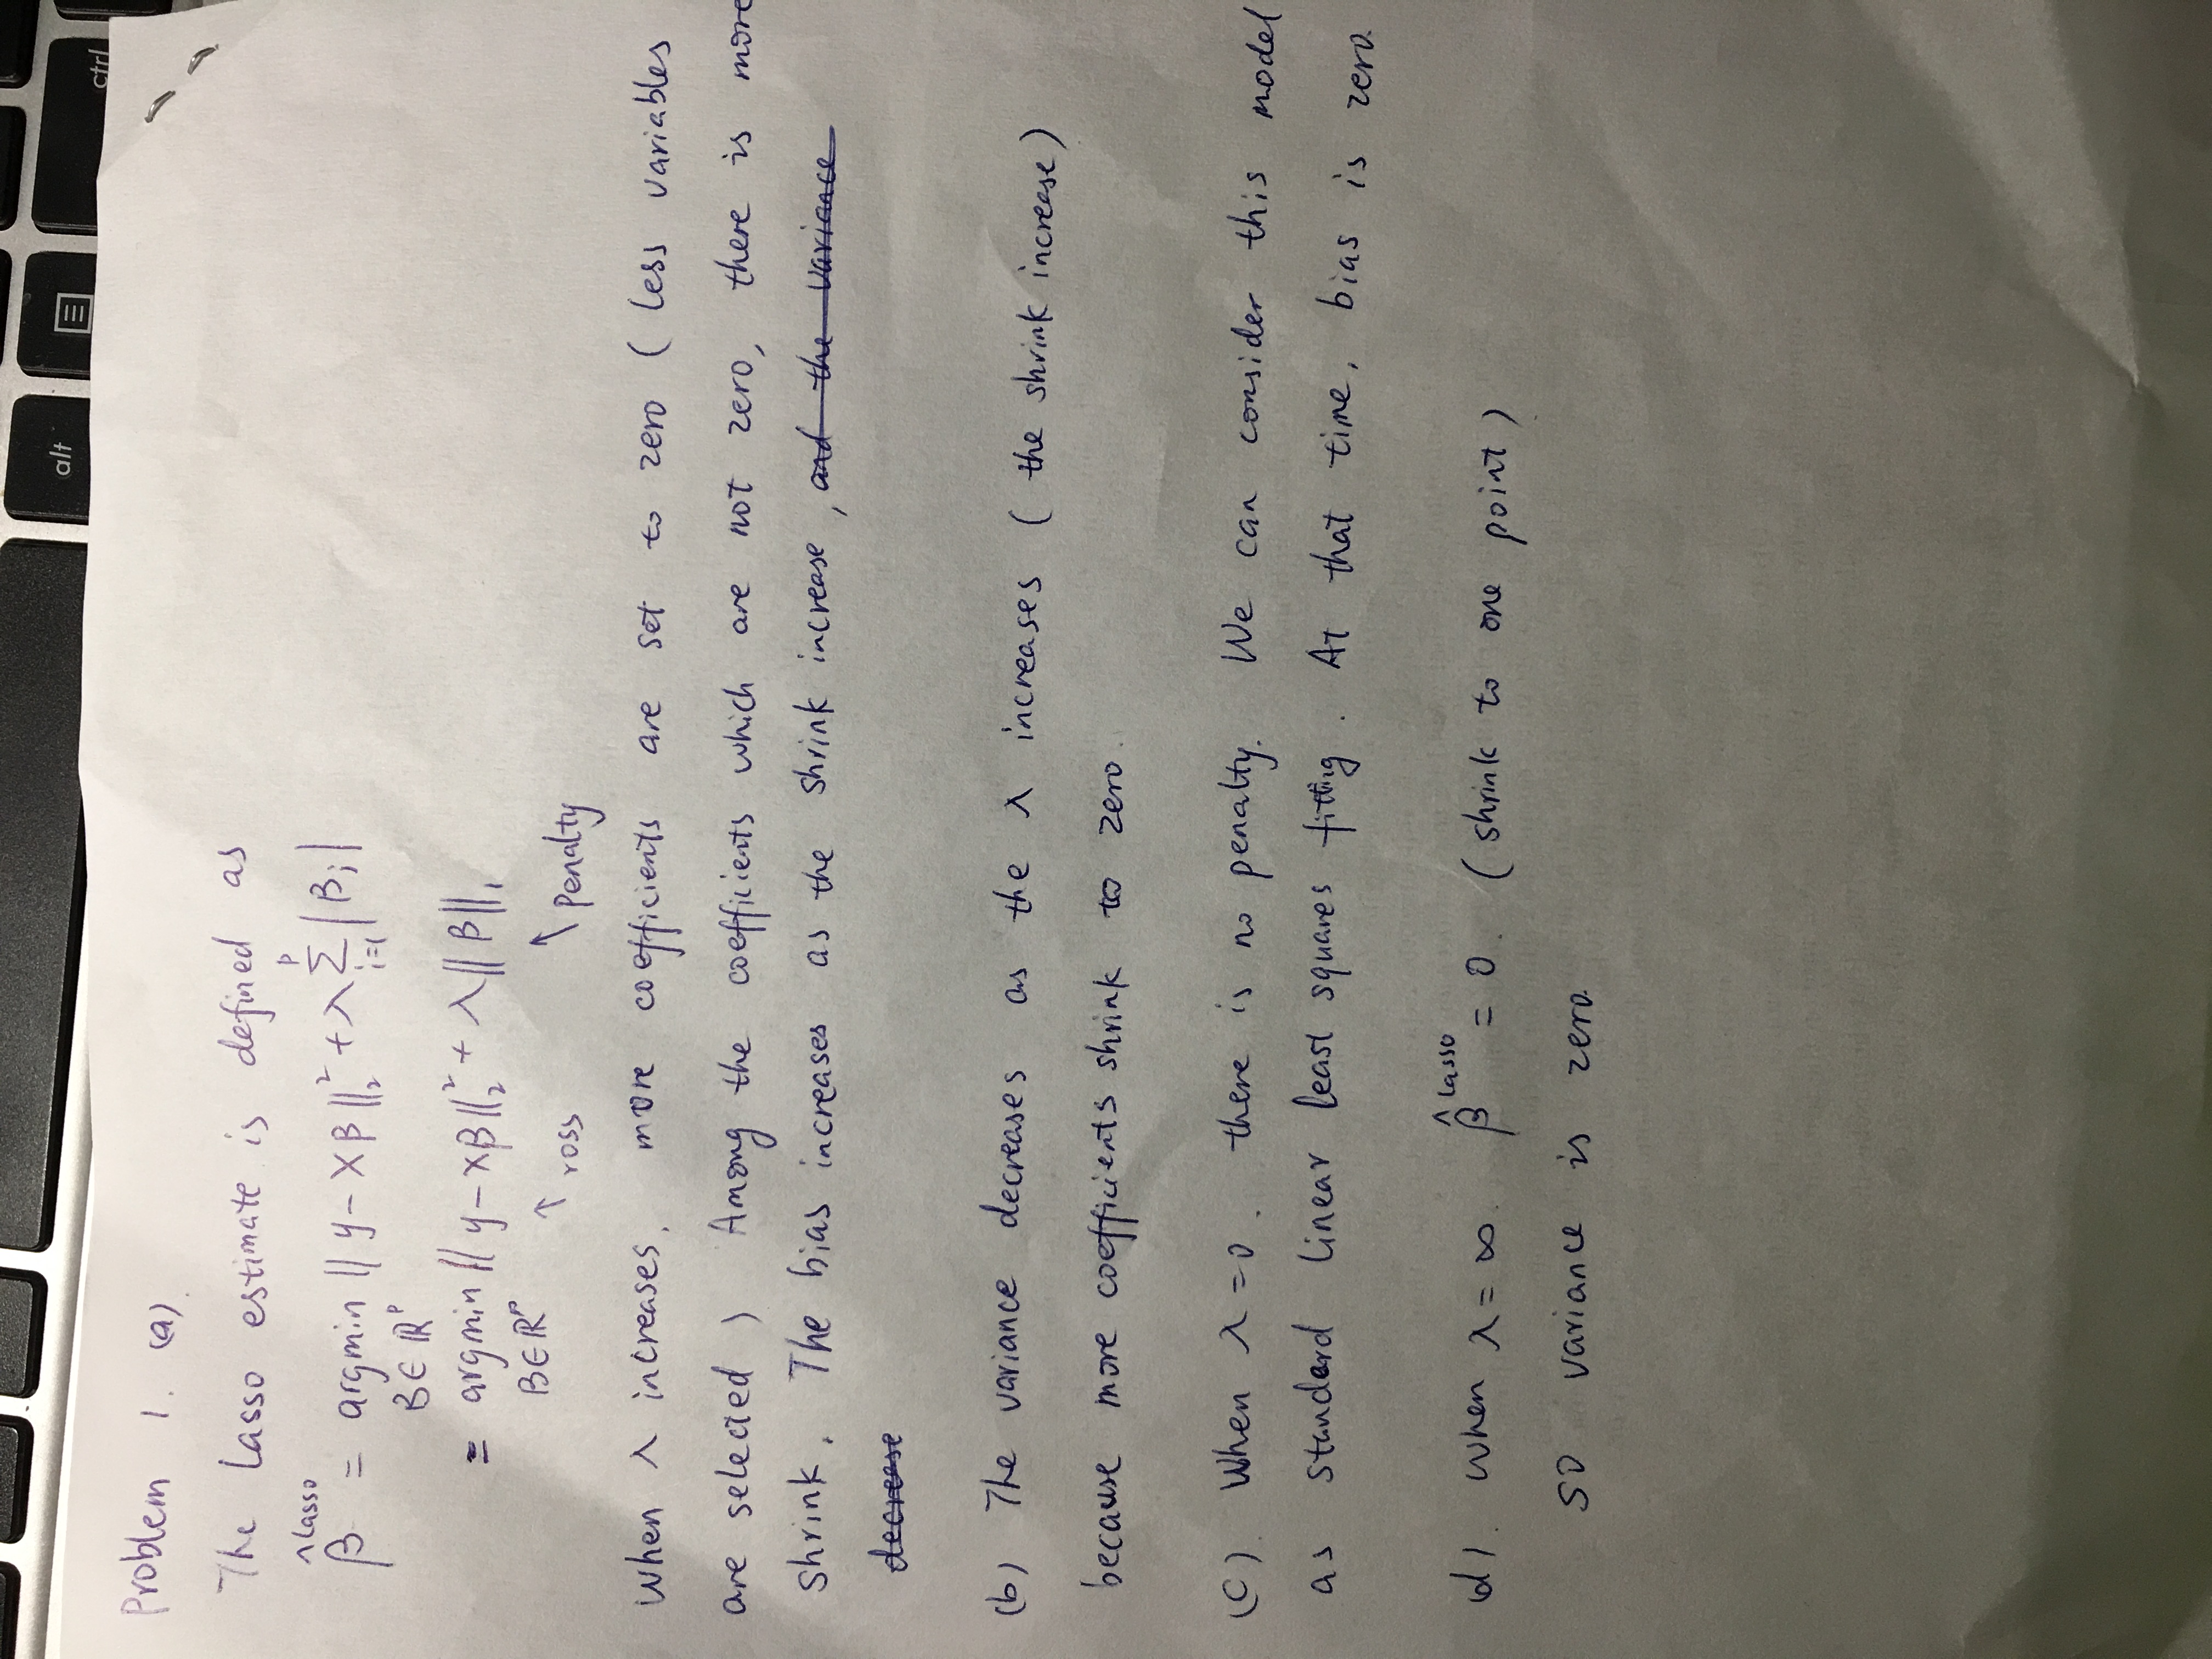 alt
ctrl
Problem 1. (a).
The Lasso estimate is defined as
β̂^Lasso = argmin || y - Xβ ||₂² + λ Σ_{i=1}^{p} |βi|
β∈ℝᵖ
= argmin || y - Xβ ||₂² + λ || β ||₁
β∈ℝᵖ
↑ ross ↑ Penalty
When λ increases, more coefficients are set to zero ( less variables
are selected ) Among the coefficients which are not zero, there is more
shrink. The bias increases as the shrink increase, and the variance
decrease
(b) The variance decreases as the λ increases ( the shrink increase )
because more coefficients shrink to zero.
(c). When λ = 0. there is no penalty. We can consider this model
as standard linear least squares fitting. At that time, bias is zero.
d). When λ = ∞. β̂^Lasso = 0. ( shrink to one point )
so variance is zero.